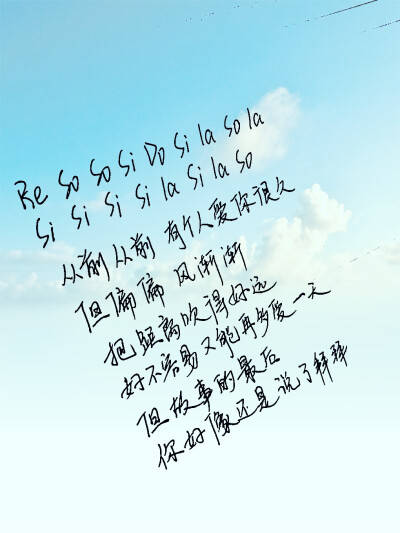 Re So So Si Do Si la So la
Si Si Si Si la Si la So
从前从前 有个人爱你很久
但偏偏 风渐渐
把距离吹得好远
好不容易又能再多爱一天
但故事的最后
你好像还是说了拜拜